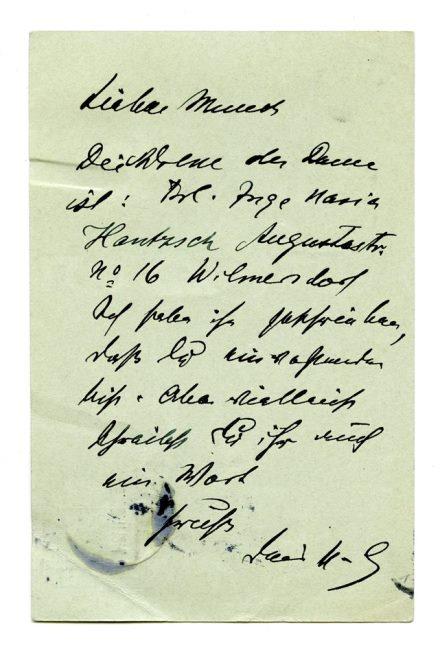 Lieber Munch
Die Adresse der Dame
ist: Frl. Inge Maria
Hantzsch Augustastr.
No 16 Wilmersdorf
Ich habe ihr geschrieben,
daß Du einverstanden
bist. Aber vielleicht
schreibst Du ihr auch
ein Wort
Gruß
Dein